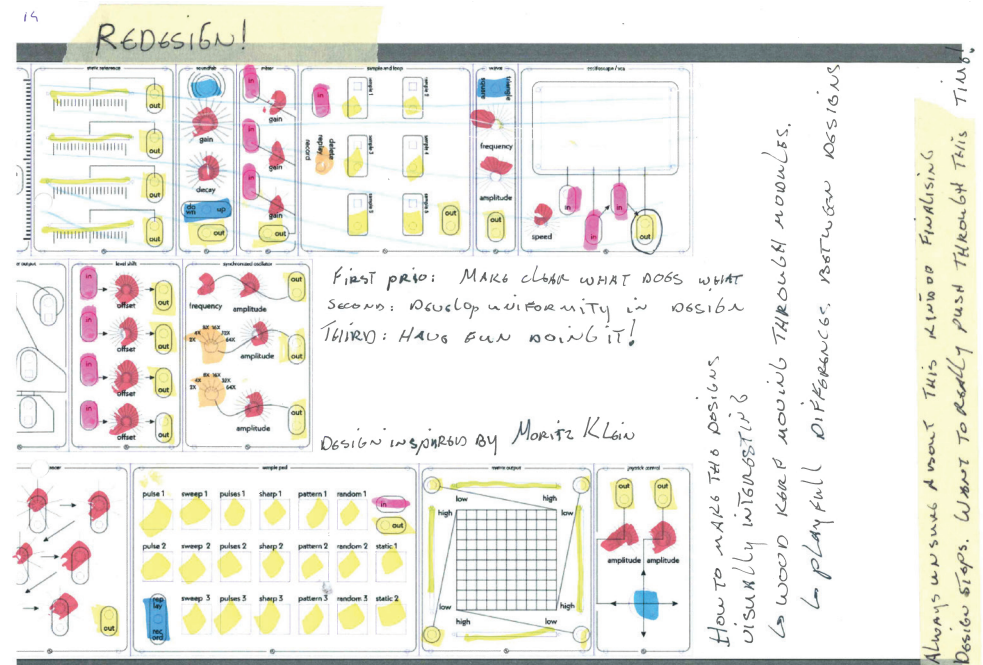 14
REDESIGN!
static reference
soundfist
mixer
sample and loop
waves
oscilloscope / vca
out
out
out
out
gain
decay
do wn
up
out
in
gain
in
gain
in
gain
out
in
delete
replay
record
sample 1
sample 2
sample 3
sample 4
sample 5
sample 6
out
square
triangle
frequency
amplitude
out
speed
in
in
in
out
output
level shift
synchronized oscillator
in
offset
out
in
offset
out
in
offset
out
in
offset
out
frequency
amplitude
out
2X
4X
8X
16X
32X
64X
amplitude
out
2X
4X
8X
16X
32X
64X
amplitude
out
FIRST PRIO: MAKE CLEAR WHAT DOES WHAT
SECOND: DEVELOP UNIFORMITY IN DESIGN
THIRD: HAVE FUN DOING IT!
DESIGN INSPIRED BY MORITZ KLEIN
sample pad
pulse 1
sweep 1
pulses 1
sharp 1
pattern 1
random 1
in
out
pulse 2
sweep 2
pulses 2
sharp 2
pattern 2
random 2
static 1
rep lay
rec ord
sweep 3
pulses 3
sharp 3
pattern 3
random 3
static 2
out
output
low
high
high
low
low
high
high
low
joystick control
out
out
amplitude
amplitude
HOW TO MAKE THE DESIGNS
VISUALLY INTERESTING
↳ WOOD KEEP MOVING THROUGH MODULES.
↳ PLAYFULL DIFFERENCES BETWEEN DESIGNS
ALWAYS UNSURE ABOUT THIS KIND OF FINALISING
DESIGN STEPS. WANT TO REALLY PUSH THROUGH THIS TIME!